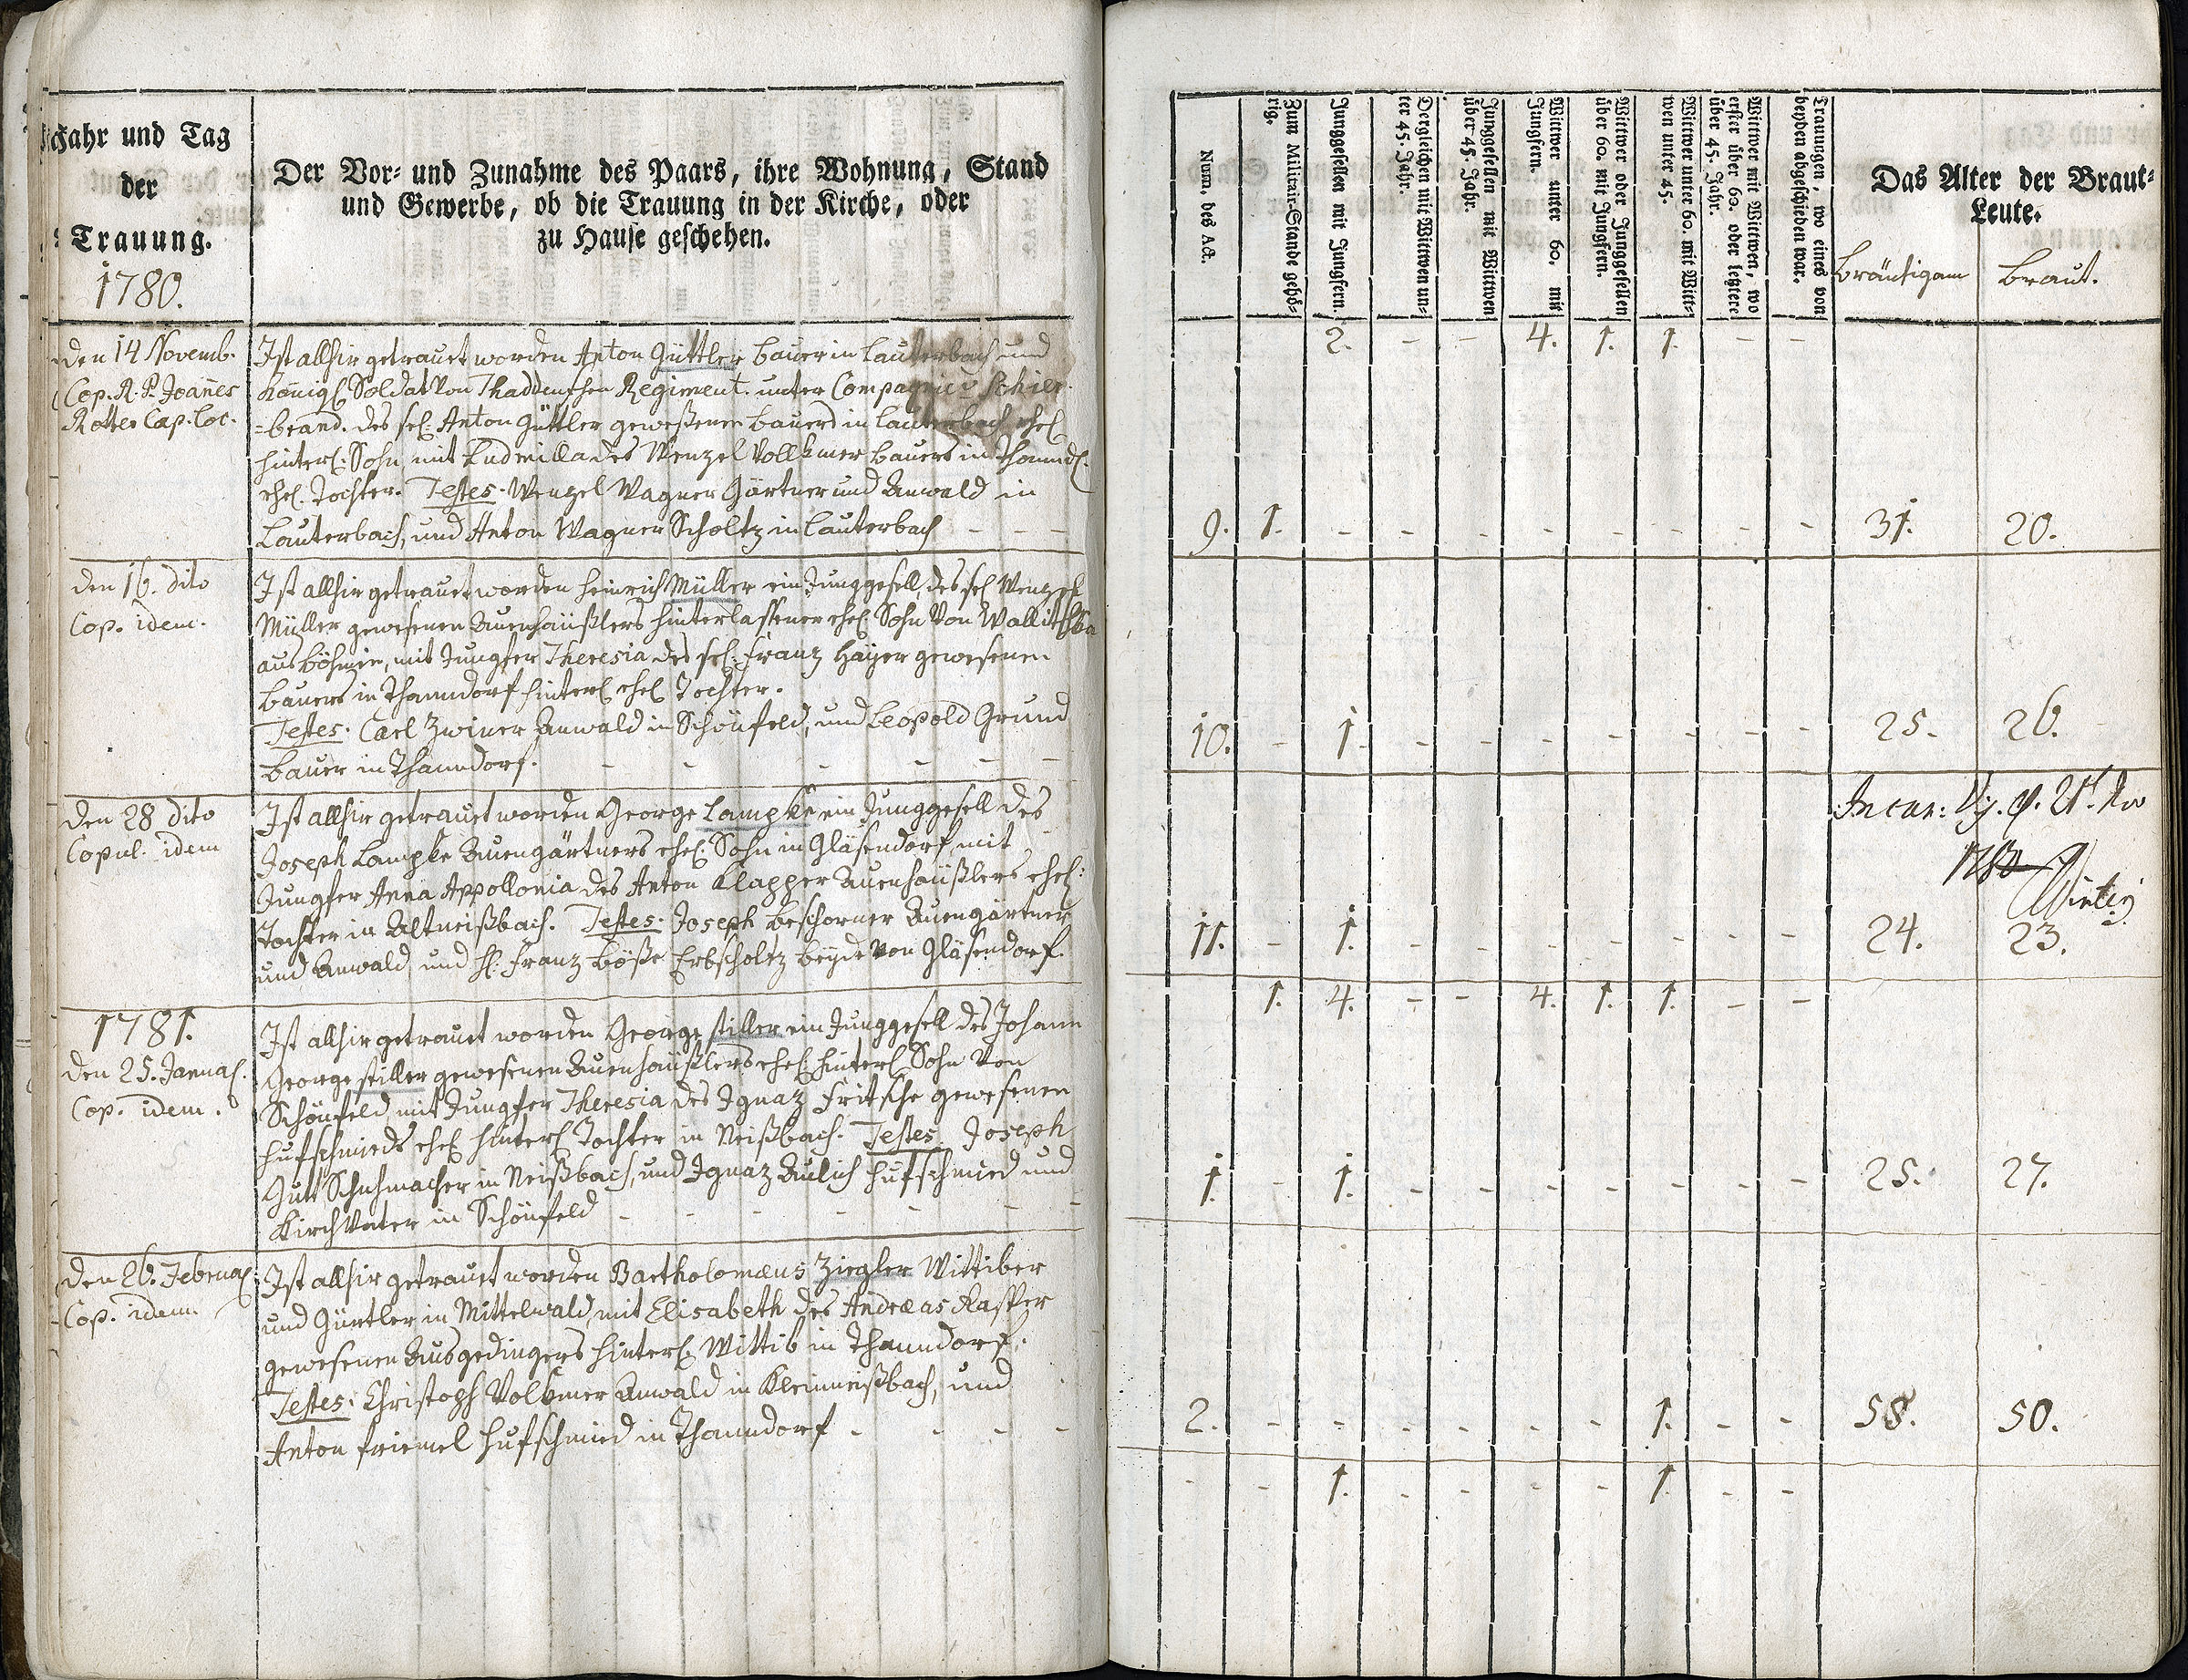 Jahr und Tag
der
Trauung.
1780.
Der Vor- und Zunahme des Paars, ihre Wohnung, Stand
und Gewerbe, ob die Trauung in der Kirche, oder
zu Hause geschehen.
den 14 Novemb.
Cop. R. P. Joan̄es
Rotter Cap. Loc.
Ist allhir getrauet worden Anton Güttler, Bauer in Lauterbach und
Königl Soldat von Thaddenschen Regiment. unter Compagnie v Schier
=brand. des sel: Anton Güttler geweßenen Bauers in Lauterbach ehel
hinterl. Sohn, mit Ludmilla des Wenzel Vollkmer Bauers in Thannd.
ehel. Tochter. Testes. Wenzel Wagner Gärtner und Anwald in
Lauterbach, und Anton Wagner Scholtz in Lauterbach - - -
den 16. dito
Cop. idem.
Ist allhir getrauet worden Heinrich Müller ein Junggesell, des sel Wenzel
Müller gewesenen Auenhäußlers hinterlassener ehel. Sohn von
aus Böhmen, mit Jungfer Theresia des sel: Franz Hayer gewesenen
Bauers in Thanndorf hinterl ehel Tochter.
Testes. Carl Zwiner Anwald in Schönfeld, und Leopold Grund
Bauer in Thanndorf. - - - - - -
den 28 dito
Copul. idem
Ist allhir getrauet worden George Lampke ein Junggesell des
Joseph Lampke Auengärtners ehel. Sohn in Gläsendorf, mit
Jungfer Anna Appollonia des Anton Klapper Auenhäußlers ehel:
Tochter in Altneißbach. Testes: Joseph Beschorner Auengärtner
und Anwald, und H: Franz Böße Erbscholtz beyde von Gläsendorf.
1781.
den 25. Januar.
Cop. idem.
Ist allhir getrauet worden George Stiller ein Junggesell des Johann
George Stiller gewesenen Auenhäußlers ehel. hinterl Sohn von
Schönfeld, mit Jungfer Theresia des Ignaz Fritsche gewesenen
Hufschmieds ehel hinterl Tochter in Neißbach. Testes. Joseph
Gütt Schuhmacher in Neißbach, und Ignaz Aulich Hufschmied und
Kirchvater in Schönfeld - - - - - -
den 26. Februar.
Cop. idem
Ist allhir getrauet worden Bartholomæus Ziegler Wittiber
und Gürtler in Mittelwald, mit Elisabeth des Andreas Rasper
gewesenen Ausgedingers hinterl. Wittib in Thanndorf.
Testes: Christoph Volkmer Anwald in Kleinneißbach, und
Anton Friemel Hufschmied in Thanndorf - - - -
Num. des Act.
Zum Militair-Stande gehö-
rig.
Junggesellen mit Jungfern.
Dergleichen mit Wittwen un-
ter 45. Jahr.
Junggesellen mit Wittwen
über 45. Jahr.
Wittwer unter 60, mit
Jungfern.
Wittwer oder Junggesellen
über 60. mit Jungfern.
Wittwer unter 60. mit Witt-
wen unter 45.
Wittwer mit Wittwen, wo
erster über 60. oder letztere
über 45. Jahr.
Trauungen, wo eines von
beyden abgeschieden war.
Das Alter der Braut-
Leute.
Bräutigam Braut.
2. - - 4. 1. 1. - -
9. 1. - - - - - - - - 31. 20.
10. - 1. - - - - - - - 25. 26.
1780
11. - 1. - - - - - - - 24. 23.
1. 4. - - 4. 1. 1. - -
1. - 1. - - - - - - - 25. 27.
2. - - - - - - 1. - - 58. 50.
- - 1. - - - - 1. - -